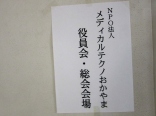 NPO法人
メディカルテクノおかやま
役員会・総会会場